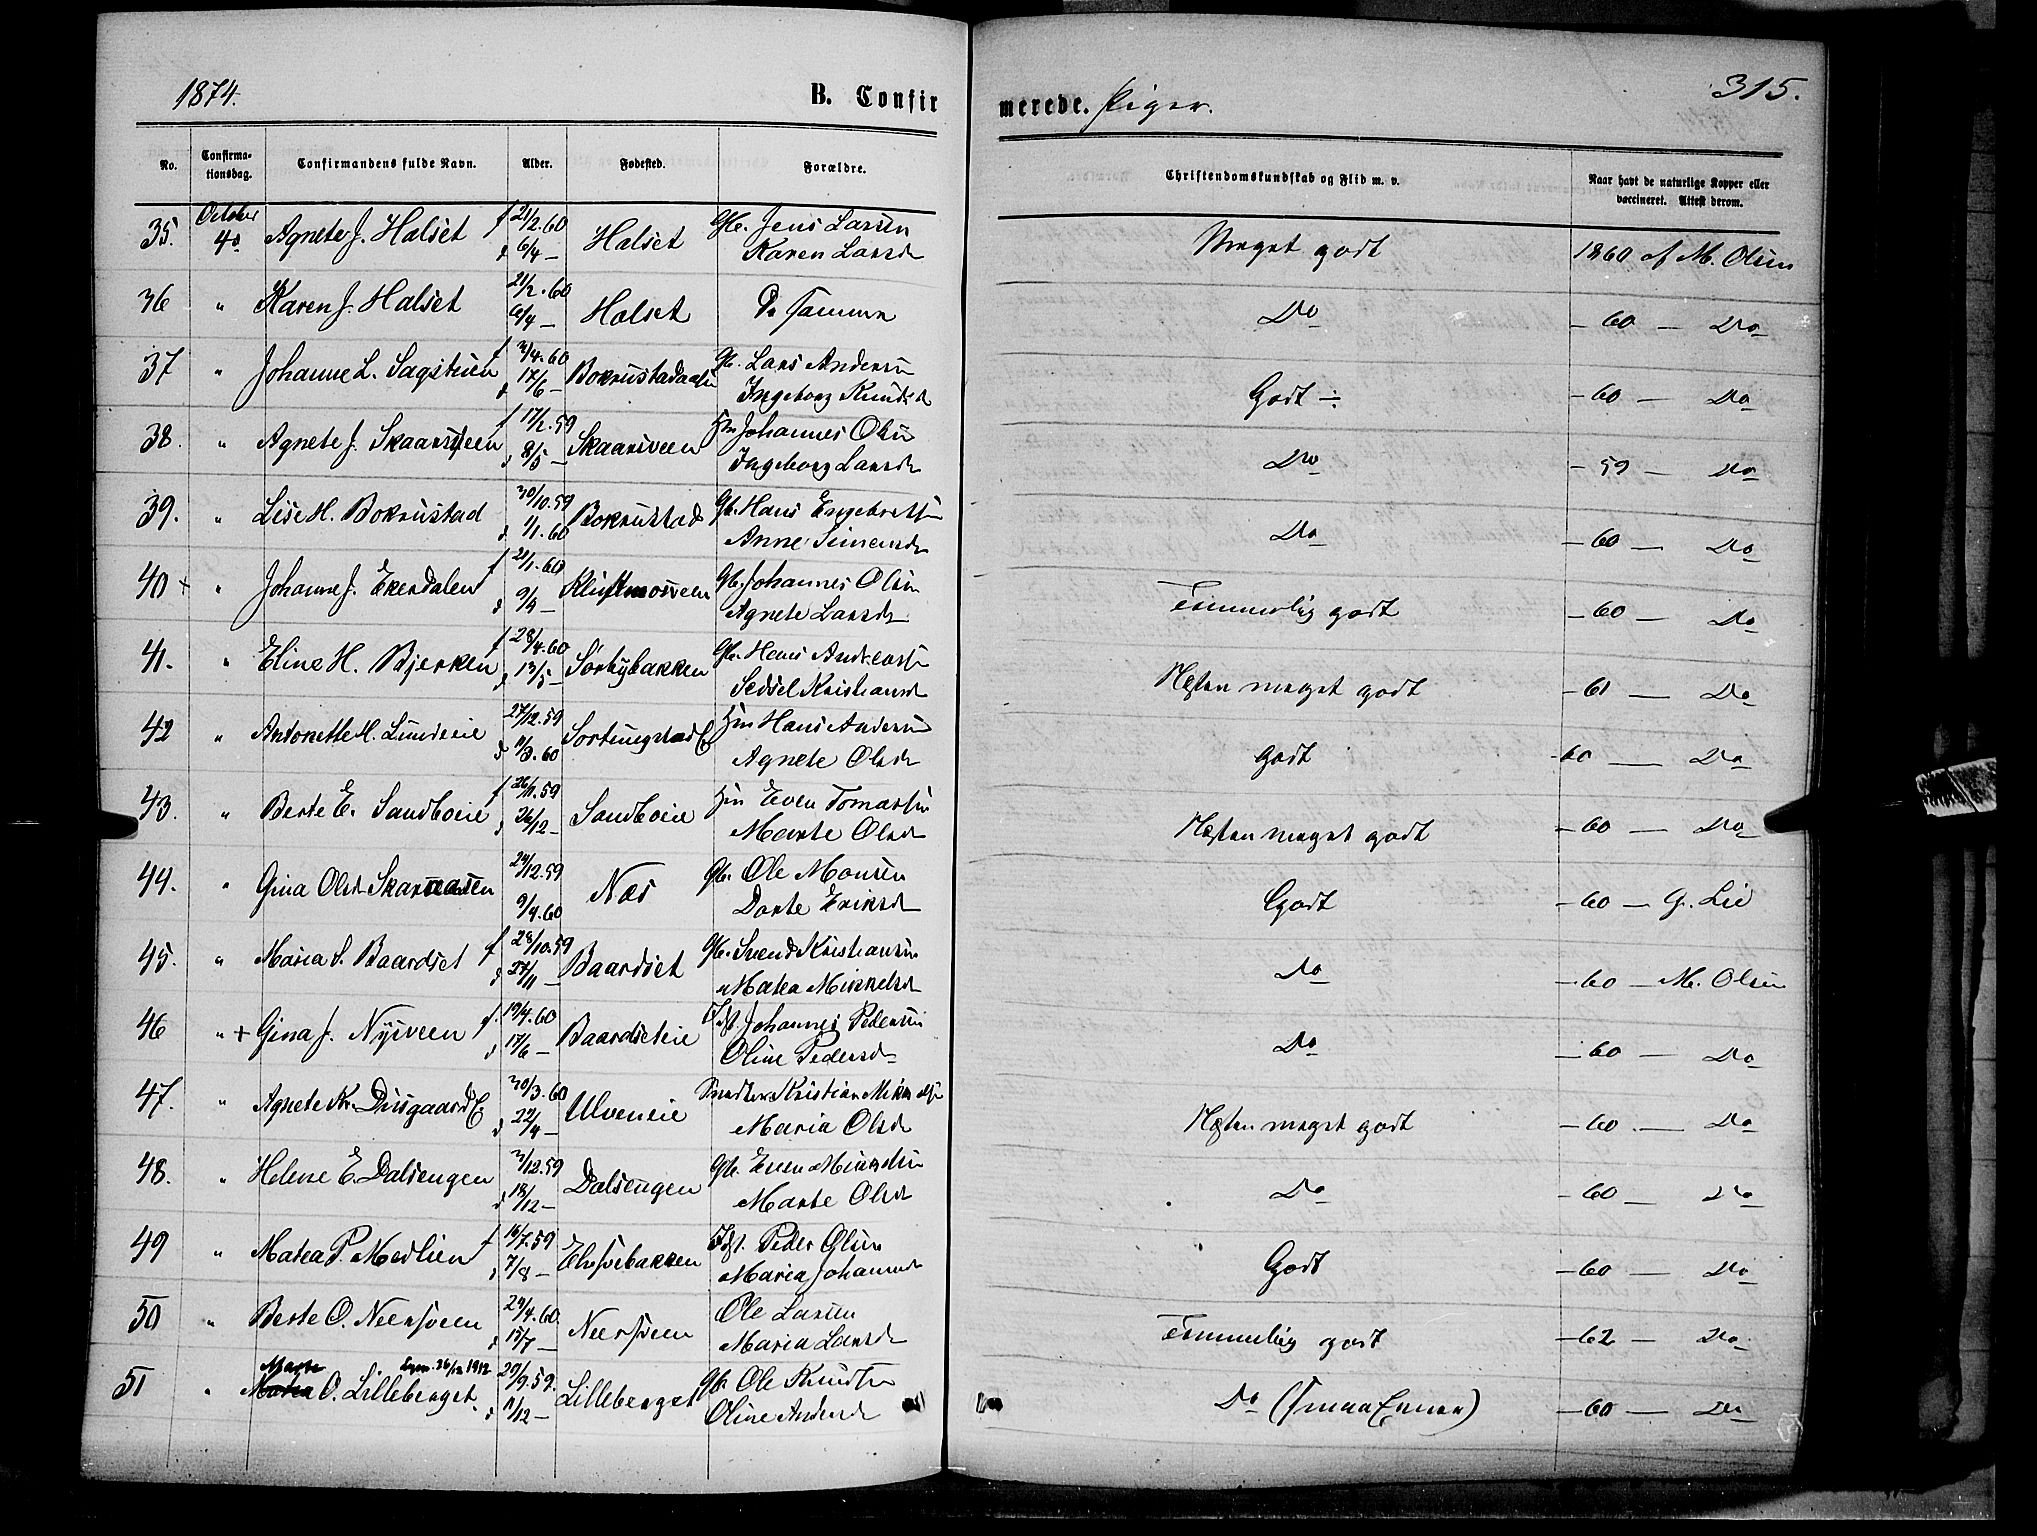 1874.
B. Confir
merede. Piger.
315.
No.
Confirma-
tionsdag.
Confirmandens fulde Navn.
Alder.
Fødested.
Forældre.
Christendomskundskab og Flid m. v.
Naar havt de naturlige Kopper eller
vaccineret. Attest derom.
35. October 4de Agnete J. Halset f 21/2.60 d 6/4 — Halset Gbr. Jens Larsen
Karen Larsd
Meget godt 1860 af M. Olsen
36 " Karen J. Halset 21/2.60 6/4 — Halset De Samme
Do — 60 — Do
37 " Johanne L. Sagstuen f 3/4.60 d 17/6 — Bokrustad Gbr. Lars Andersen
Ingeborg Knudsd
Godt ÷ — 60 — Do
38. " Agnete J. Skaarsveen f 17/2.59 d 8/5 — Skaarsveen Hm Johannes Olsen
Ingeborg Larsd
Do — 59 — Do
39. " Lise H. Bokrustad 30/10.59 d 1/1.60 Bokrustad Gbr. Hans Engebretsen
Anne Simensd
Do — 60 — Do
40 + " Johanne J. Ekerdalen f 21/1.60 d 9/4 — Gbr. Johannes Olsen
Agnete Larsd
Temmelig godt — 60 — Do
41. " Eline H. Bjerken f 28/4.60 d 13/5 — Sørbybakken Gbr. Hans Andreass
Sedsel Kristiansd
Næsten meget godt — 61 — Do
42 " Antonette H. Lundseie 27/12.59 d 11/3.60 Hm Hans Andersen
Agnete Olsd
Godt — 60 — Do
43. " Berte E. Sandboeie f 26/11.59 d 26/12 — Sandboeie Hm Even Tomassen
Marte Olsd
Næsten meget godt — 60 — Do
44. " Gina Olsd 24/12.59 9/4.60 Næs Gbr Ole Monsen
Dorte Eriksd
Godt — 60 — G. Lie
45. " Maria S. Baardset f 28/10.59 d 27/11 — Baardset Gbr. Svend Kristiansen
Matea Mikkelsd
Do — 60 — M. Olsen
46 " + Gina J. Nysveen f. 19/4.60 d 17/6 — Baardseteie Johannes Pedersen
Oline Pedersd
Do — 60 — Do
47. " Agnete Kr. 30/3.60 d 22/4 — Ulveneie Kristian
Maria Olsd
Næsten meget godt — 60. — Do
48. " Helene E. Dalsengen 3/12.59 d 18/12 — Dalsengen Gbr. Even
Marte Olsd
Do — 60 — Do
49 " Matea P. Moelien f 16/7.59 d 7/8 — Peder Olsen
Maria Johannesd
Godt — 60 — Do
50 " Berte O. Neersveen 24/4.60 d 15/7 — Neersveen Ole Larsen
Maria Larsd
Temmelig godt — 62 — Do
51 " Marte 26/12 1912
Matea O. Lilleberget. 20/9.59. d 11/12 — Lilleberget Gbr Ole Knudsen
Oline Andersd
Do (smaa Evner) — 60 — Do